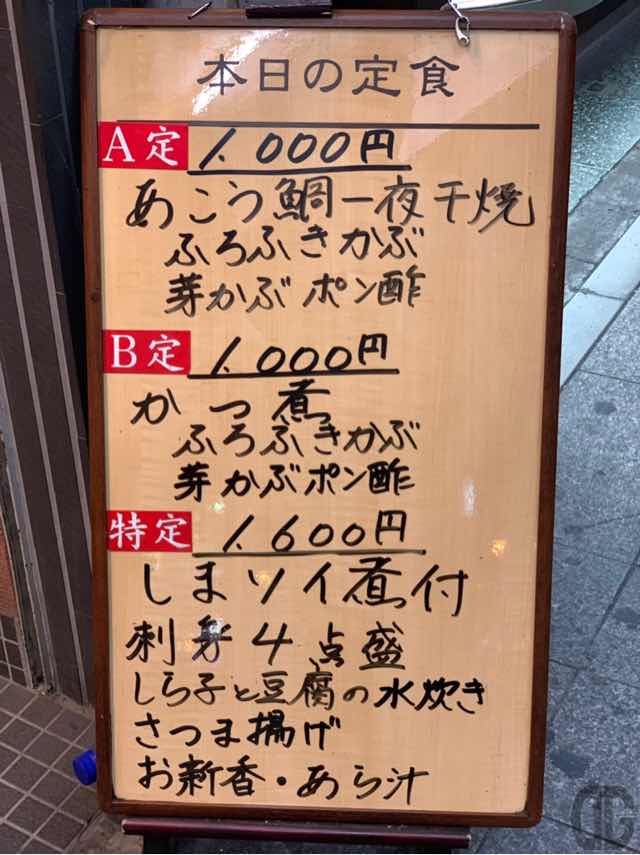 本日の定食
A定 1.000円
あこう鯛一夜干焼
ふろふきかぶ
芽かぶポン酢
B定 1.000円
かつ煮
ふろふきかぶ
芽かぶポン酢
特定 1.600円
しまソイ煮付
刺身4点盛
しら子と豆腐の水炊き
さつま揚げ
お新香・あら汁